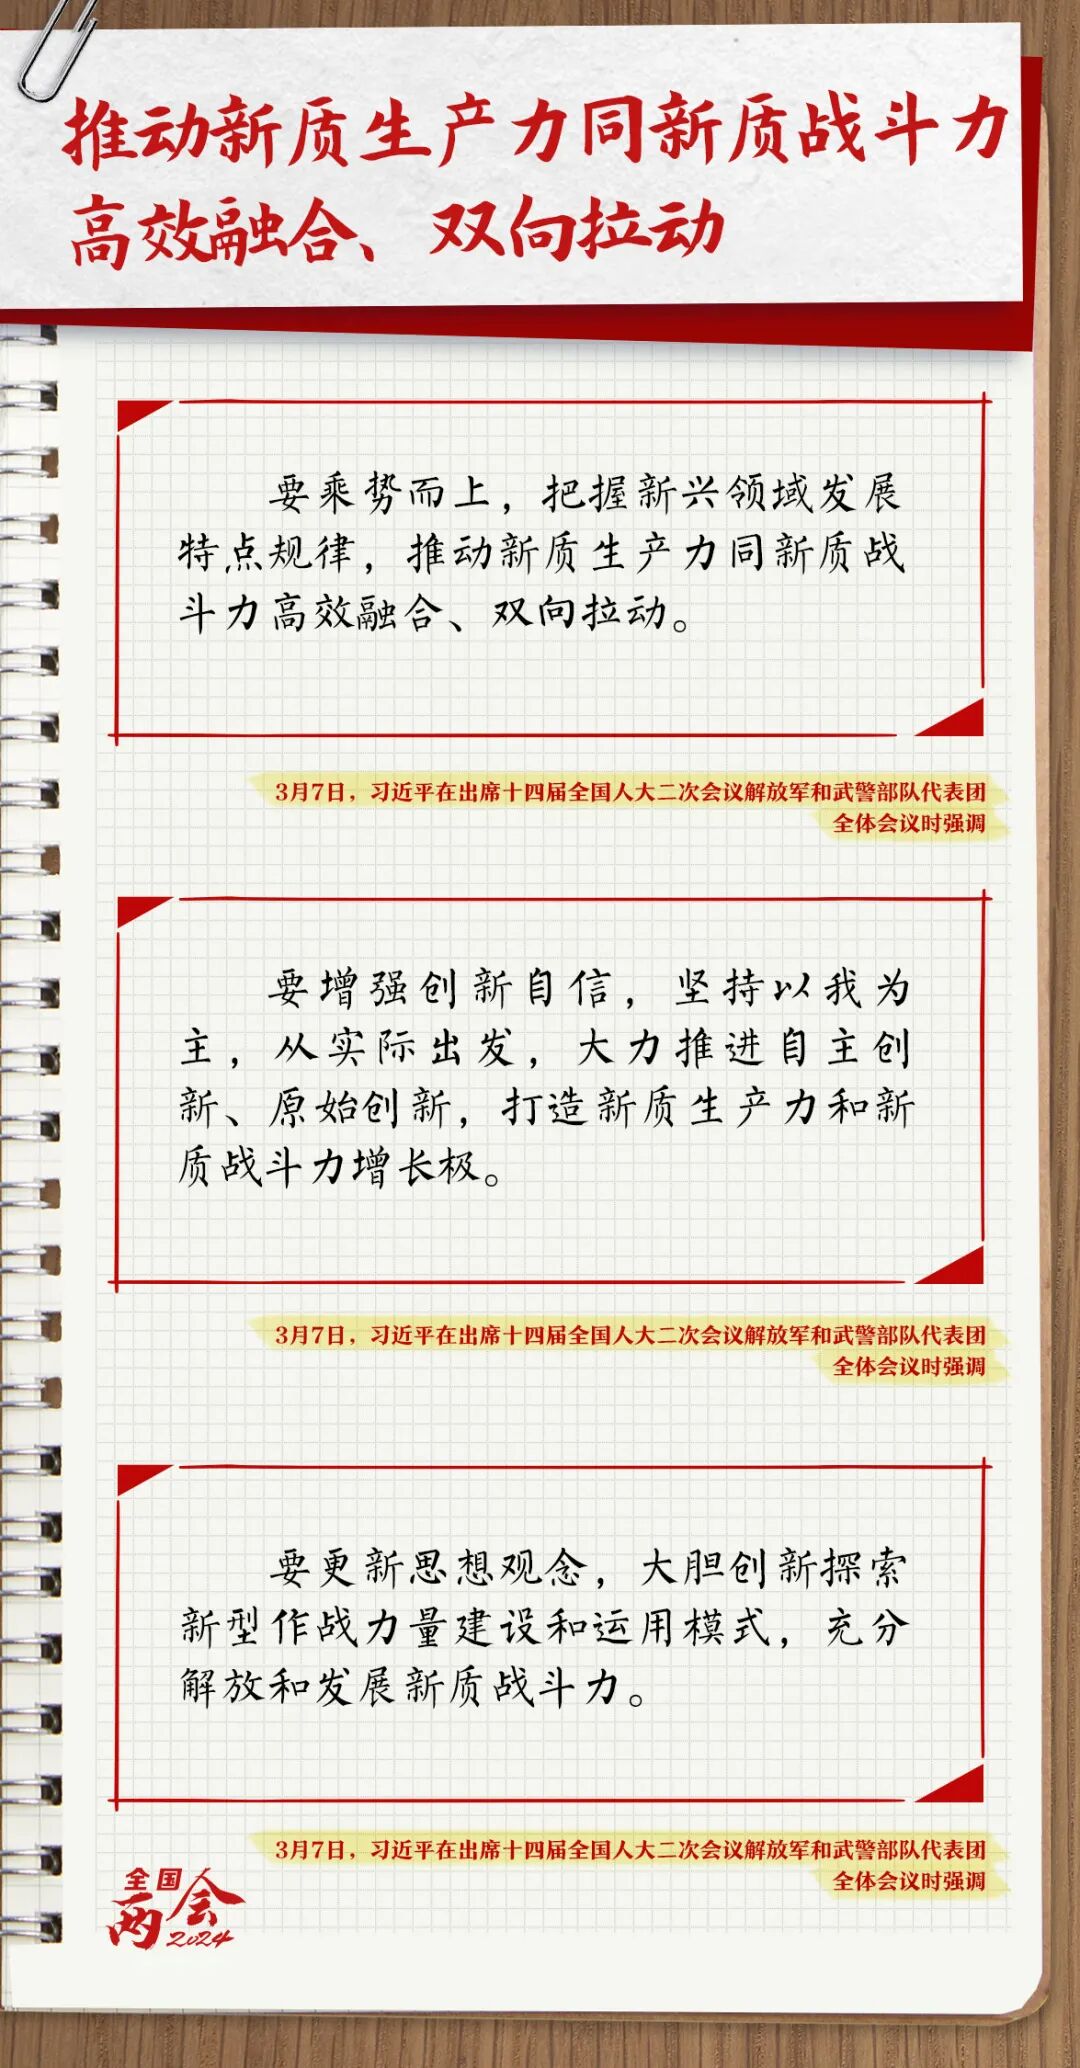 推动新质生产力同新质战斗力
高效融合、双向拉动
要乘势而上，把握新兴领域发展
特点规律，推动新质生产力同新质战
斗力高效融合、双向拉动。
3月7日，习近平在出席十四届全国人大二次会议解放军和武警部队代表团
全体会议时强调
要增强创新自信，坚持以我为
主，从实际出发，大力推进自主创
新、原始创新，打造新质生产力和新
质战斗力增长极。
3月7日，习近平在出席十四届全国人大二次会议解放军和武警部队代表团
全体会议时强调
要更新思想观念，大胆创新探索
新型作战力量建设和运用模式，充分
解放和发展新质战斗力。
3月7日，习近平在出席十四届全国人大二次会议解放军和武警部队代表团
全体会议时强调
全国
两会
2024